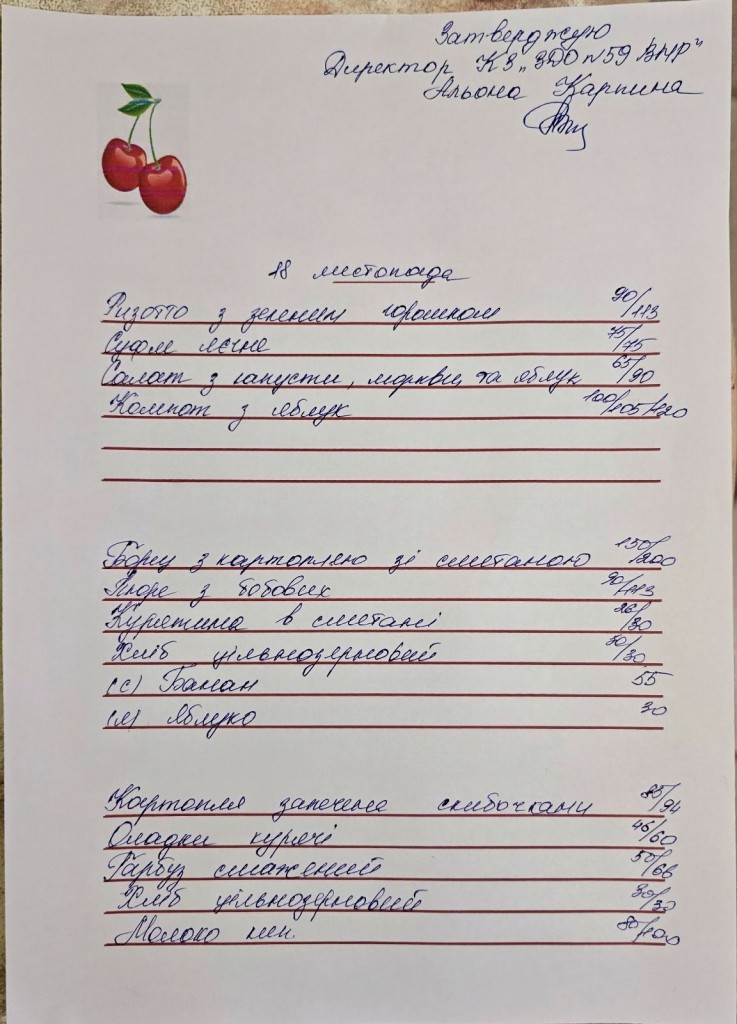 Затверджую
Директор КЗ „ЗДО №59 ВМР"
Альона Карпина
18 листопада
Ризотто з зеленим горошком 90/113
Суфле яєчне 75/75
Салат з капусти, моркви та яблук 65/90
Компот з яблук 100/105/120
Борщ з картоплею зі сметаною 150/200
Пюре з бобових 90/113
Курятина в сметані 26/30
Хліб цільнозерновий 30/30
(с) Банан 55
(я) Яблуко 30
Картопля запечена скибочками 85/94
Оладки курячі 46/60
Гарбуз смажений 50/66
Хліб цільнозерновий 30/30
Молоко кип. 80/100